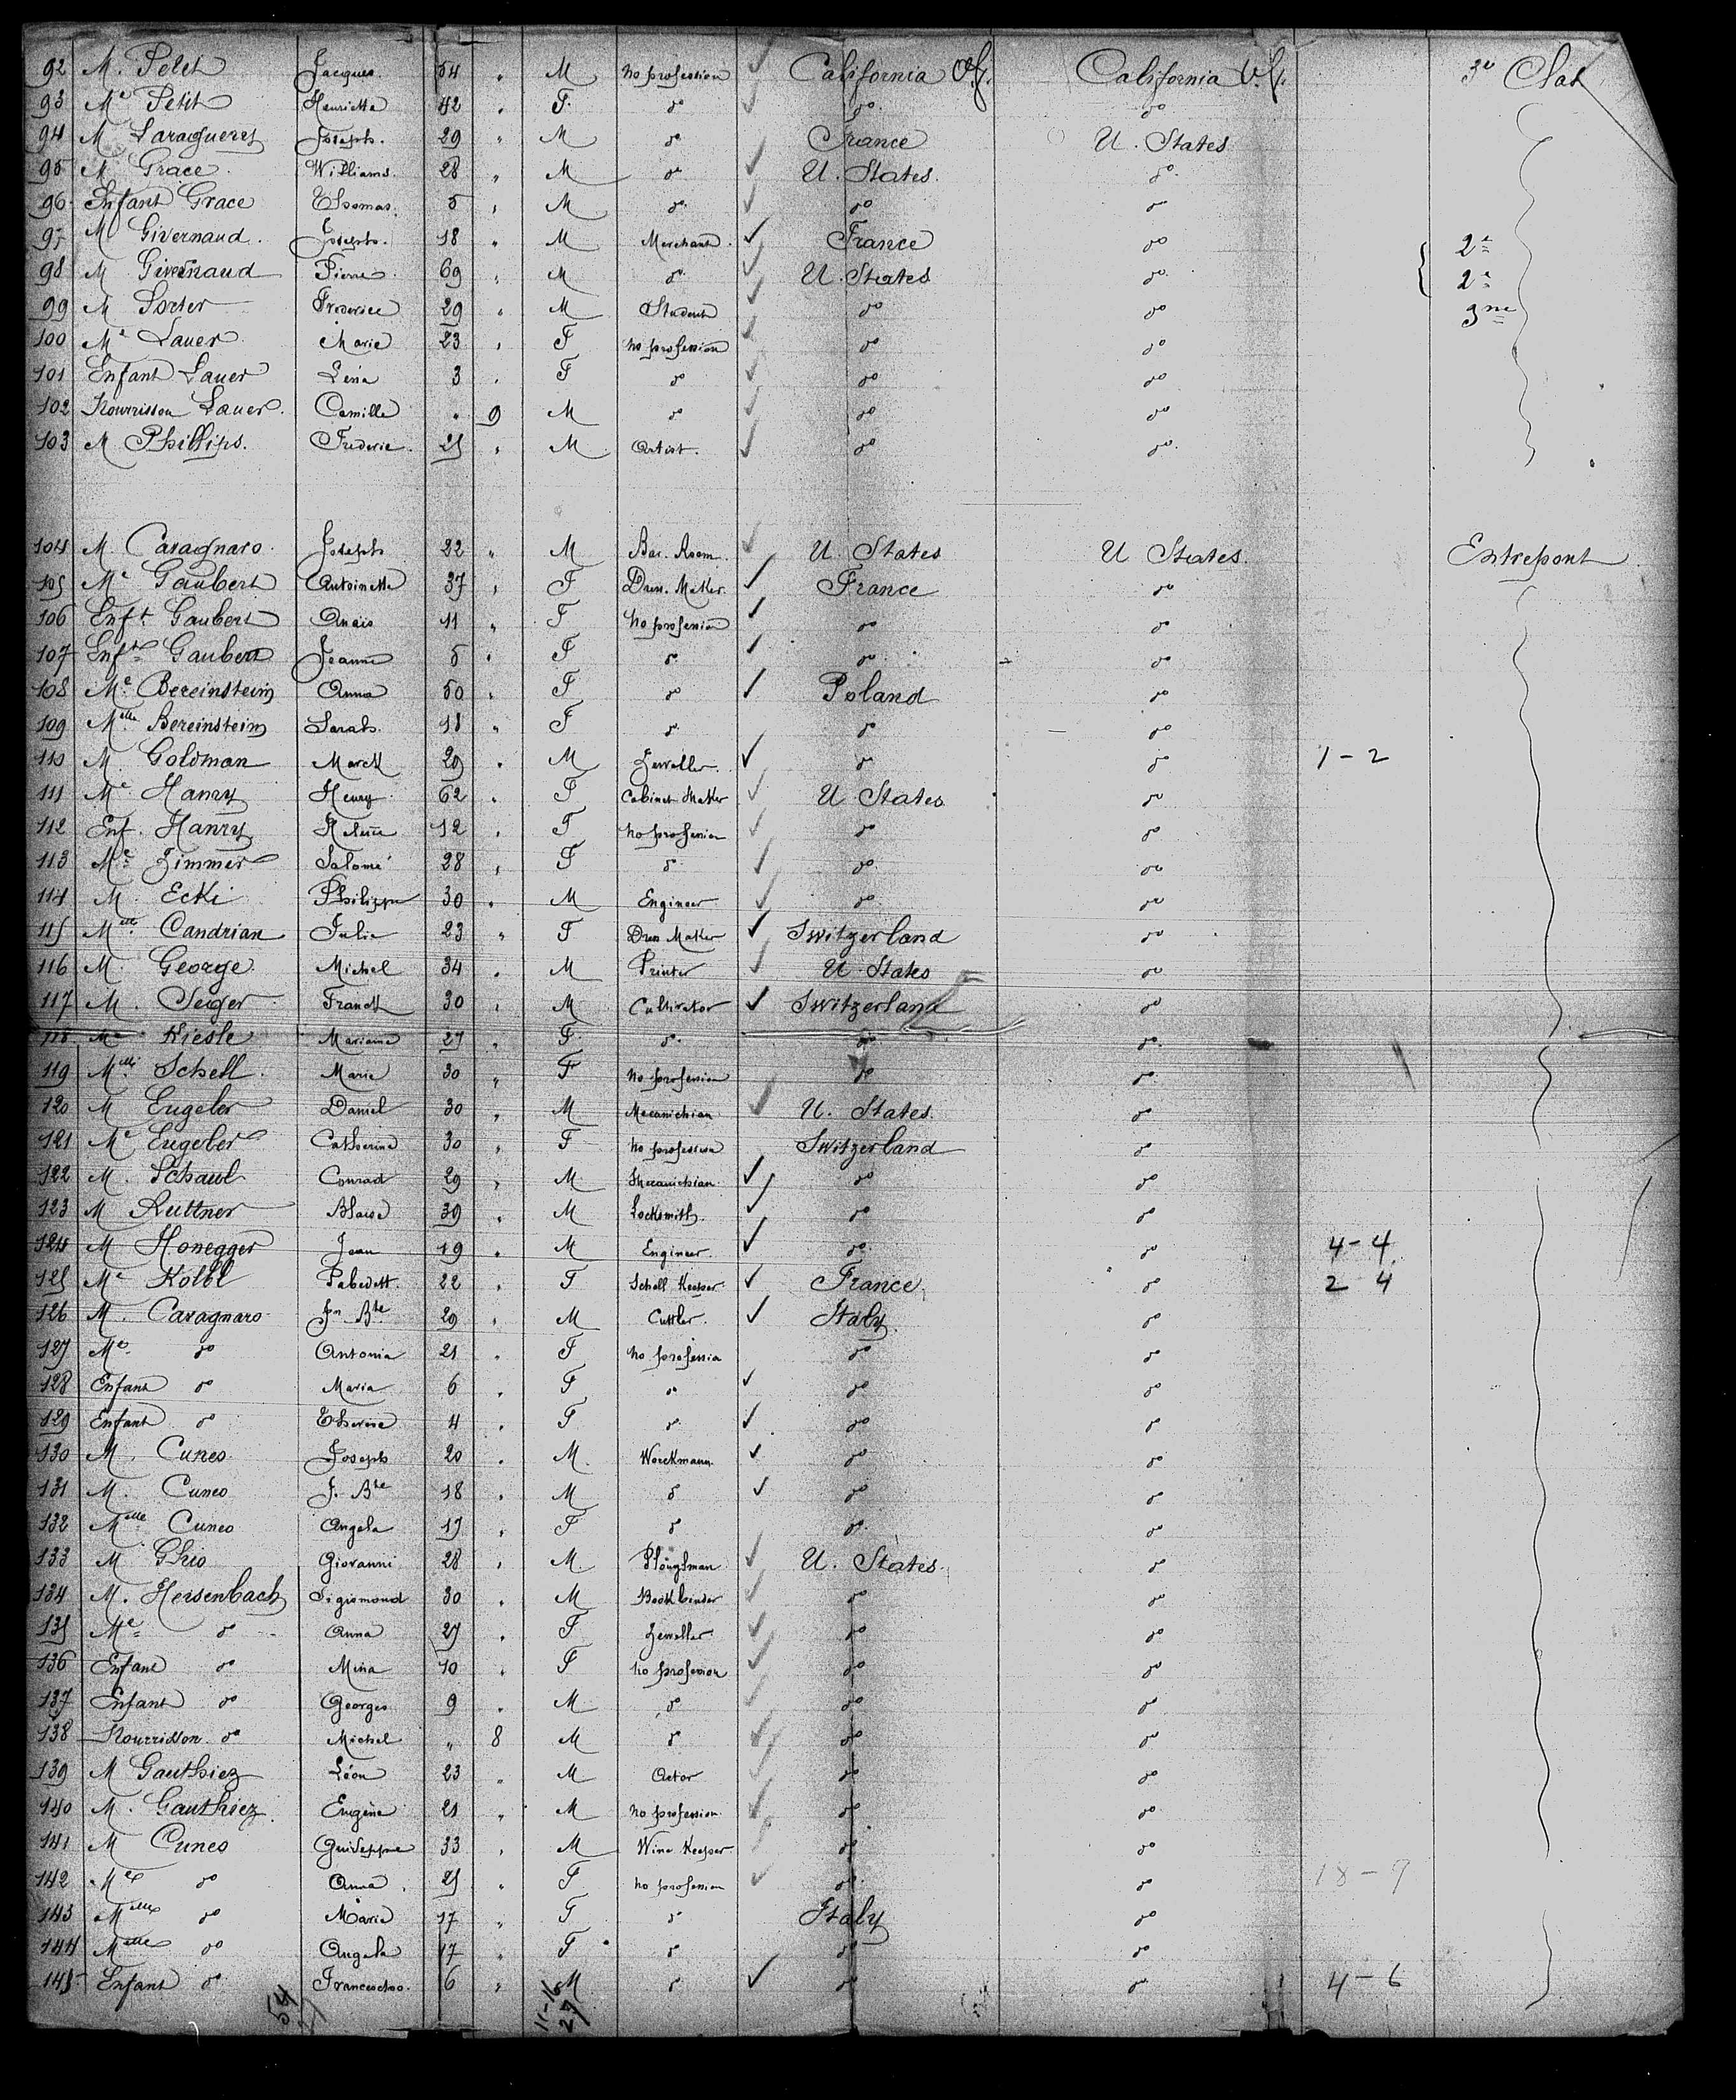 92 M. Petit Jacques 54 " M No profession California V.f. California V.f. 3e Clas
93 Me Petit Henrietta 42 " F. do do do
94 M Laragueres Joseph. 29 " M do France U. States
95 M Grace Williams. 28 " M do U. States. do
96 Enfant Grace Thomas. 5 " M do do do
97 M Givernaud. Joseph. 18 " M Merchant. France do 2e
98 M Givernaud Pierre 69 " M do U. States do 2e
99 M Sorter Frederice 29 " M Student do do 3me
100 Me Lauer Marie 23 " F No profession do do
101 Enfant Lauer Lena 3 " F do do do
102 Nourrisson Lauer. Camille " 9 M do do do
103 M Phillips. Frederic. 25 " M Artist. do do
104 M. Caragnaro. Joseph 22 " M Bar. Room. U. States U States. Entrepont
105 Me Gaubert Antoinette 37 " F Dress. Maker. France do
106 Enft. Gaubert Anais 11 " F No profession do do
107 Enft Gaubert Jeanne 5 " F do do do
108 Me Bereinstein Anna 50 " F do Poland do
109 Melle Bereinstein Sarah. 18 " F do do do
110 M. Goldman Marck 29 " M Jeweller. do do 1-2
111 Me Hanry Henry 62 " F Cabinet Maker U States do
112 Enf. Hanry Helene 12 " F No profession do do
113 Me Zimmer Salomé 28 " F do do do
114 M. Ecki Philippe 30 " M Engineer do do
115 Melle Candrian Julie 23 " F Dress Maker Switzerland do
116 M. George Michel 34 " M Printer U. States do
117 M. Seiger Franck 30 " M Cultivator Switzerland do
118 Me Kiesle Mariane 27 " F. do do do
119 Melle Schell. Marie 30 " F No profession do do
120 M Eugeler Daniel 30 " M Mecanichian U. States. do
121 Me Eugeler Catherine 30 " F No profession Switzerland do
122 M. Schaul Conrad 29 " M Mecanichian do do
123 M Ruttner Blaise 39 " M Locksmith. do do
124 M Honegger Jean 19 " M Engineer. do do 4-4
125 Me Kolbl 22 " F Scholl Keeper France. do 2 4
126 M. Caragnaro Jn Bte 29 " M Cuttler. Italy do
127 Me do Antonia 21 " F No professia do do
128 Enfant do Maria 6 " F do do do
129 Enfant do Therese 4 " F do do do
130 M. Cuneo Joseph 20 " M. Worckmann do do
131 M. Cuneo J. Bte 18 " M do do do
132 Melle Cuneo Angela 19 " F do do do
133 M Ghio Giovanni 28 " M. Ploughman U. States. do
134 M. Hersenbach Sigismond 30 " M Bookbinder do do
135 Me do Anna 27 " F Jeweller do do
136 Enfant do Mina 10 " F No profession do do
137 Enfant do Georges 9 " M do do do
138 Nourrisson do Michel " 8 M do do do
139 M Gauthiez Léon 23 " M Actor do do
140 M. Gauthiez Eugène 21 " M No profession do do
141 M Cuneo Guiseppe 33 " M Wine Keeper do do
142 Me do Anna 25 " F No profession do do 18-9
143 Melle do Maria 17 " F do Italy do
144 Melle do Angela 17 " F do do do
145 Enfant do Francescho. 6 " M do do do 4-6
54
27
11-16
27